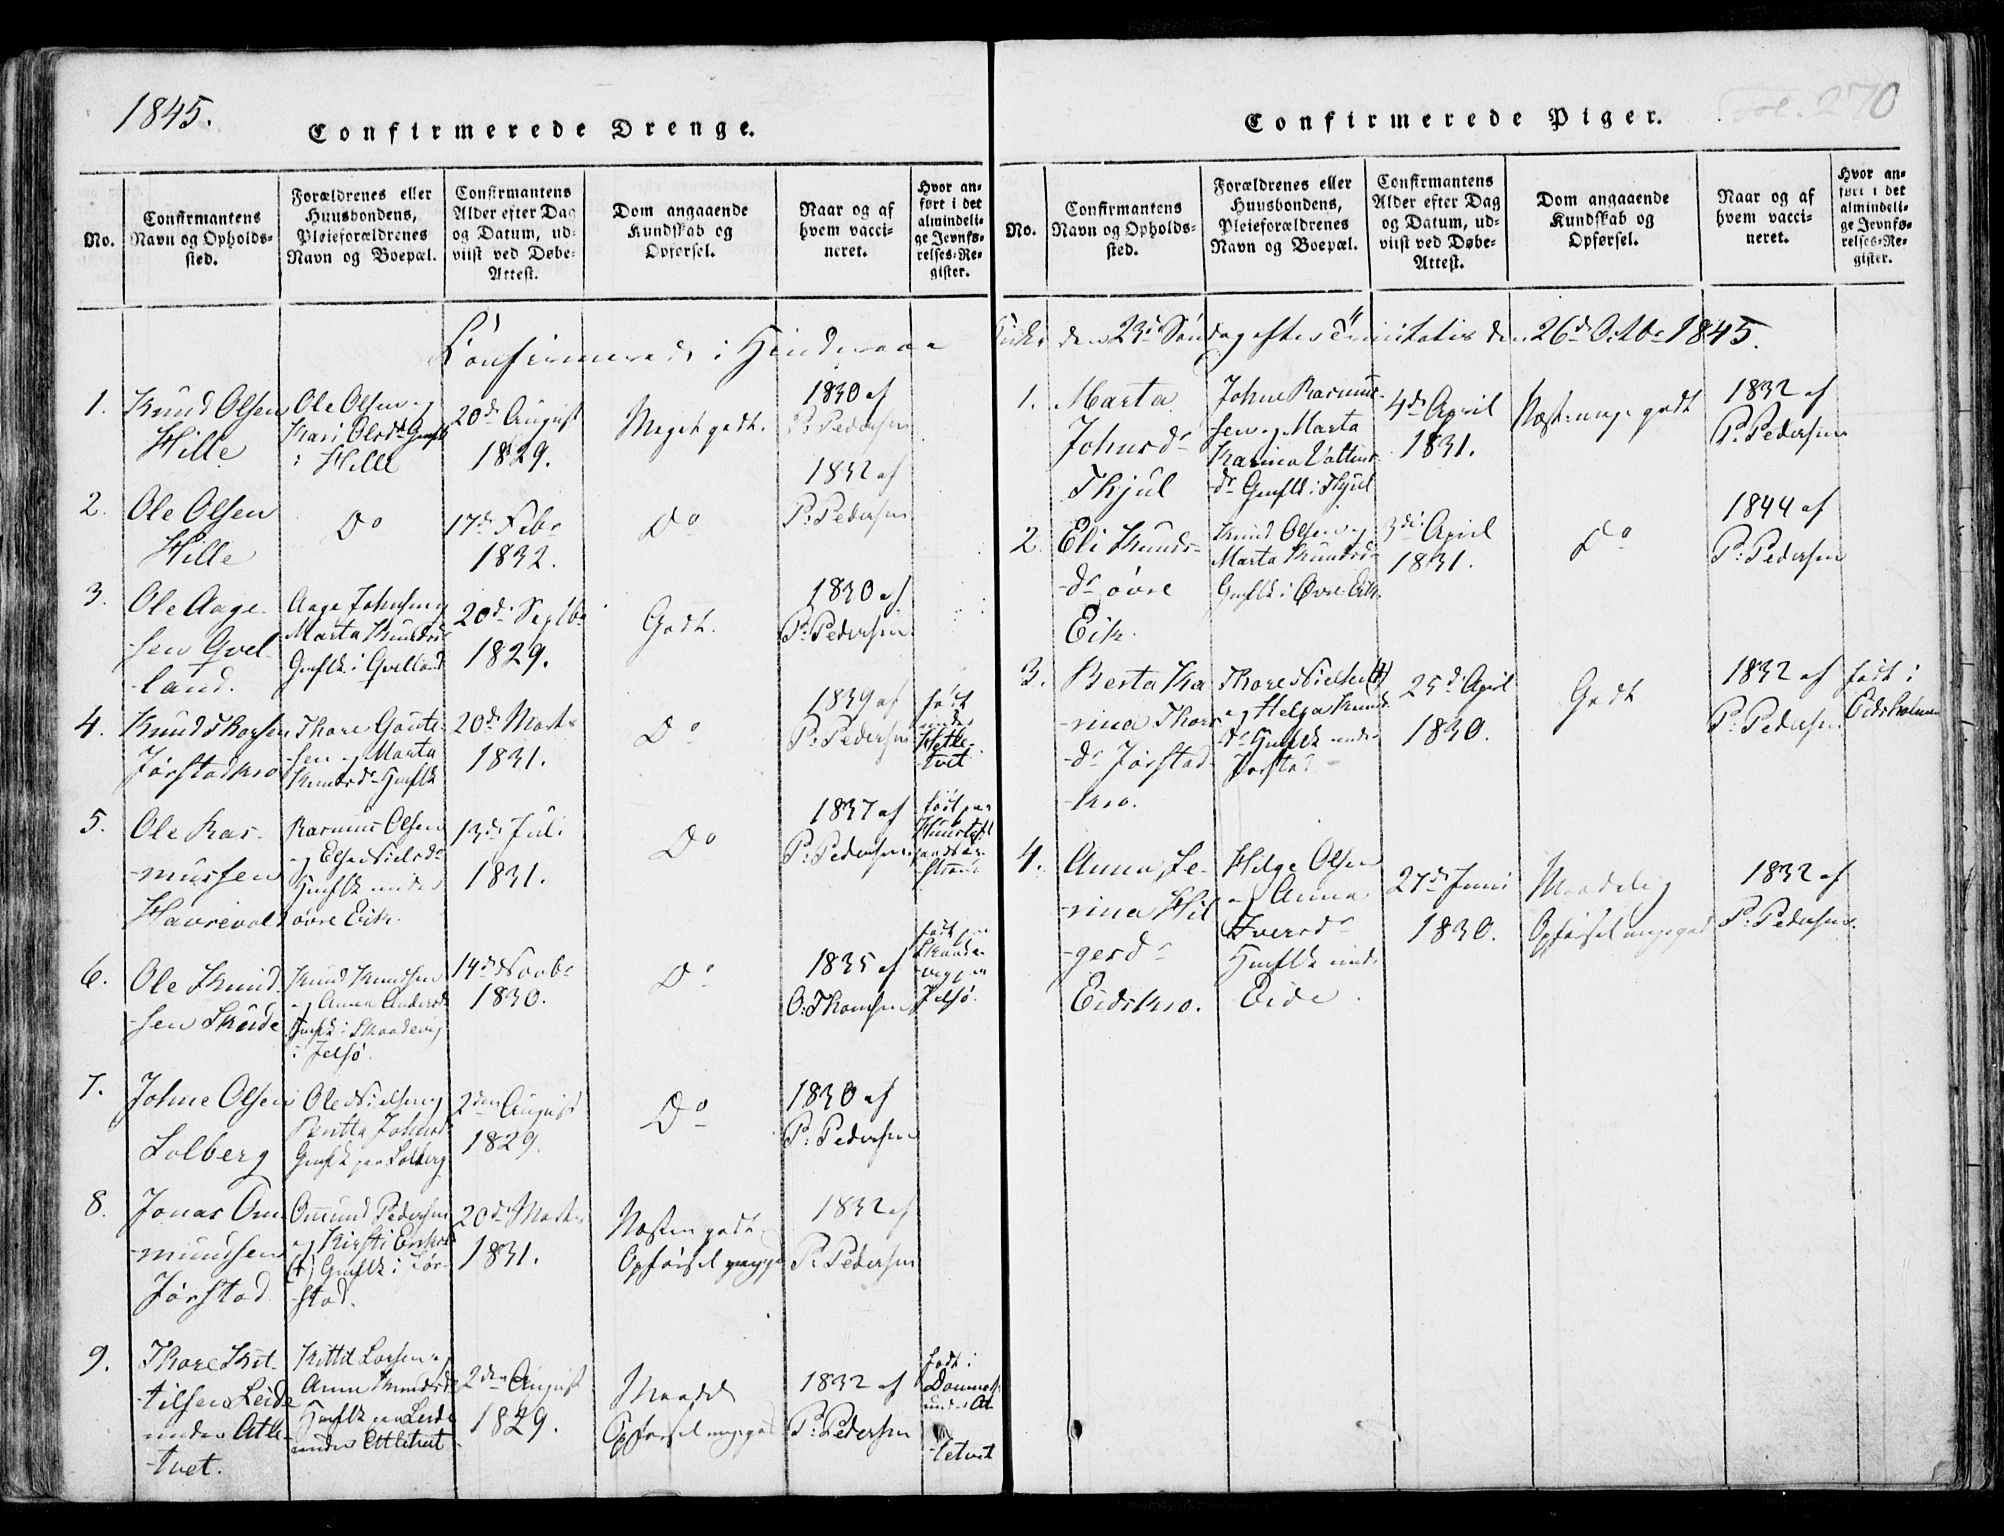 1845.
Confirmerede Drenge.
No.
Confirmantens
Navn og Opholds-
sted.
Forældrenes eller
Huusbondens,
Pleieforældrenes
Navn og Boepæl.
Confirmantens
Alder efter Dag
og Datum, ud-
viist ved Døbe-
Attest.
Dom angaaende
Kundskab og
Opførsel.
Naar og af
hvem vacci-
neret.
Hvor an-
ført i det
almindeli-
ge Jevnfø-
relses-Re-
gister.
Confirmerede i Hinderaae
1.
Knud Olsen
Hille
Ole Olsen og
Kari Olsdr Gmflk
i Hille
20de August
1829.
Meget godt.
1830 af
P. Pedersen
2.
Ole Olsen
Hille
Do
17de Febr
1832.
Do
1832 af
P. Pedersen
3.
Ole Aage-
sen Qvel-
land.
Aage Johnsen og
Marta Knudsd
Gmflk i Qvelland
20de Septbr
1829.
Godt.
1830 af
P. Pedersen
4.
Knud Thorsen
Jørstadkro
Thore Goute-
sen og Marta
Knudsdr Hmflk
20de Marts
1831.
Do
1839 af
P. Pedersen
født
under
Hetle-
tvet
5.
Ole Ras-
mussen
Havrevold
Rasmus Olsen
og Else Nielsdr
Hmflk under
øvre Eik.
13de Juli
1831.
Do
1837 af
P. Pedersen
født paa
6.
Ole Knud-
sen Skeide
Knud Knudsen
og Anna Andersd
Hmflk i Skaadevig
i Jelsø.
14de Novbr
1830.
Do
1835 af
O. Thomsen
født paa
Skaade-
vig i
Jelsø.
7.
Johne Olsen
Solberg
Ole Nielsen og
Peritta Johnsd
Gmflk paa Solberg
2den August
1829.
Do
1830 af
P. Pedersen
8.
Jonas Om-
mundsen
Jørstad
Omund Pedersen
og Kirsti
(†) Gmflk i Jør-
stad.
20de Marts
1831.
Næsten godt
Opførsel
1832 af
P. Pedersen
9.
Thore Kit-
tilsen Leide
under Atle-
tvet.
Kittil Larsen og
Anne Knudsd
Hmflk paa Leide
under Atletvet
2den August
1829.
Maadel
Opførsel megegod
1832 af
P. Pedersen
født i
under At-
letvet
Fol. 270
Confirmerede Piger.
No.
Confirmantens
Navn og Opholds-
sted.
Forældrenes eller
Huusbondens,
Pleieforældrenes
Navn og Boepæl.
Confirmantens
Alder efter Dag
og Datum, ud-
viist ved Døbe-
Attest.
Dom angaaende
Kundskab og
Opførsel.
Naar og af
hvem vacci-
neret.
Hvor an-
ført i det
almindeli-
ge Jevnfø-
relses-Re-
gister.
Kirke den 23de Søndag efter Trinitatis den 26de Octbr 1845.
1.
Marta
Johnsdr
Thjul
Johne Rasmus-
sen og Marta
Karina
dr Gmflk i Thjul
4de April
1831.
Næst mege godt
1832 af
P. Pedersen
2.
Eli Knuds-
dr øvre
Eik.
Knud Olsen og
Marta Knudsd
Gmflk i Øvre Eik
3die April
1831.
Do
1844 af
P. Pedersen
3.
Berta Ka-
rina Thors
dr Jørstad
-kro.
Thore Nielsen (†)
og Helga Knud
dr Hmflk under
Jørstad
25de April
1830.
Godt
1832 af
P. Pedersen
født i
Eidsholmen
4.
Anna Se-
rina Hil-
gersdr
Eidskro.
Hilge Olsen
og Anna
Iversdr
Hmflk under
Eide.
27de Juni
1830.
Maadelig
Opførsel megegod
1832 af
P. Pedersen.